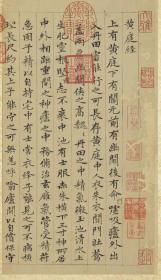 黄庭經
上有黄庭下有關元前有幽闕後有命門噓吸廬外出
入丹田審能行之可長存黄庭中人衣朱衣關門壯籥
盖兩扉幽闕俠之高巍巍丹田之中精氣微玉池清水上
生肥靈根堅志不衰中池有士服赤朱横下三寸神所居
中外相距重閉之神廬之中務脩治玄癰氣管受精符
急固子精以自持宅中有士常衣絳子能見之可不病横
理長尺約其上子能守之可無恙呼噏廬間以自償保守